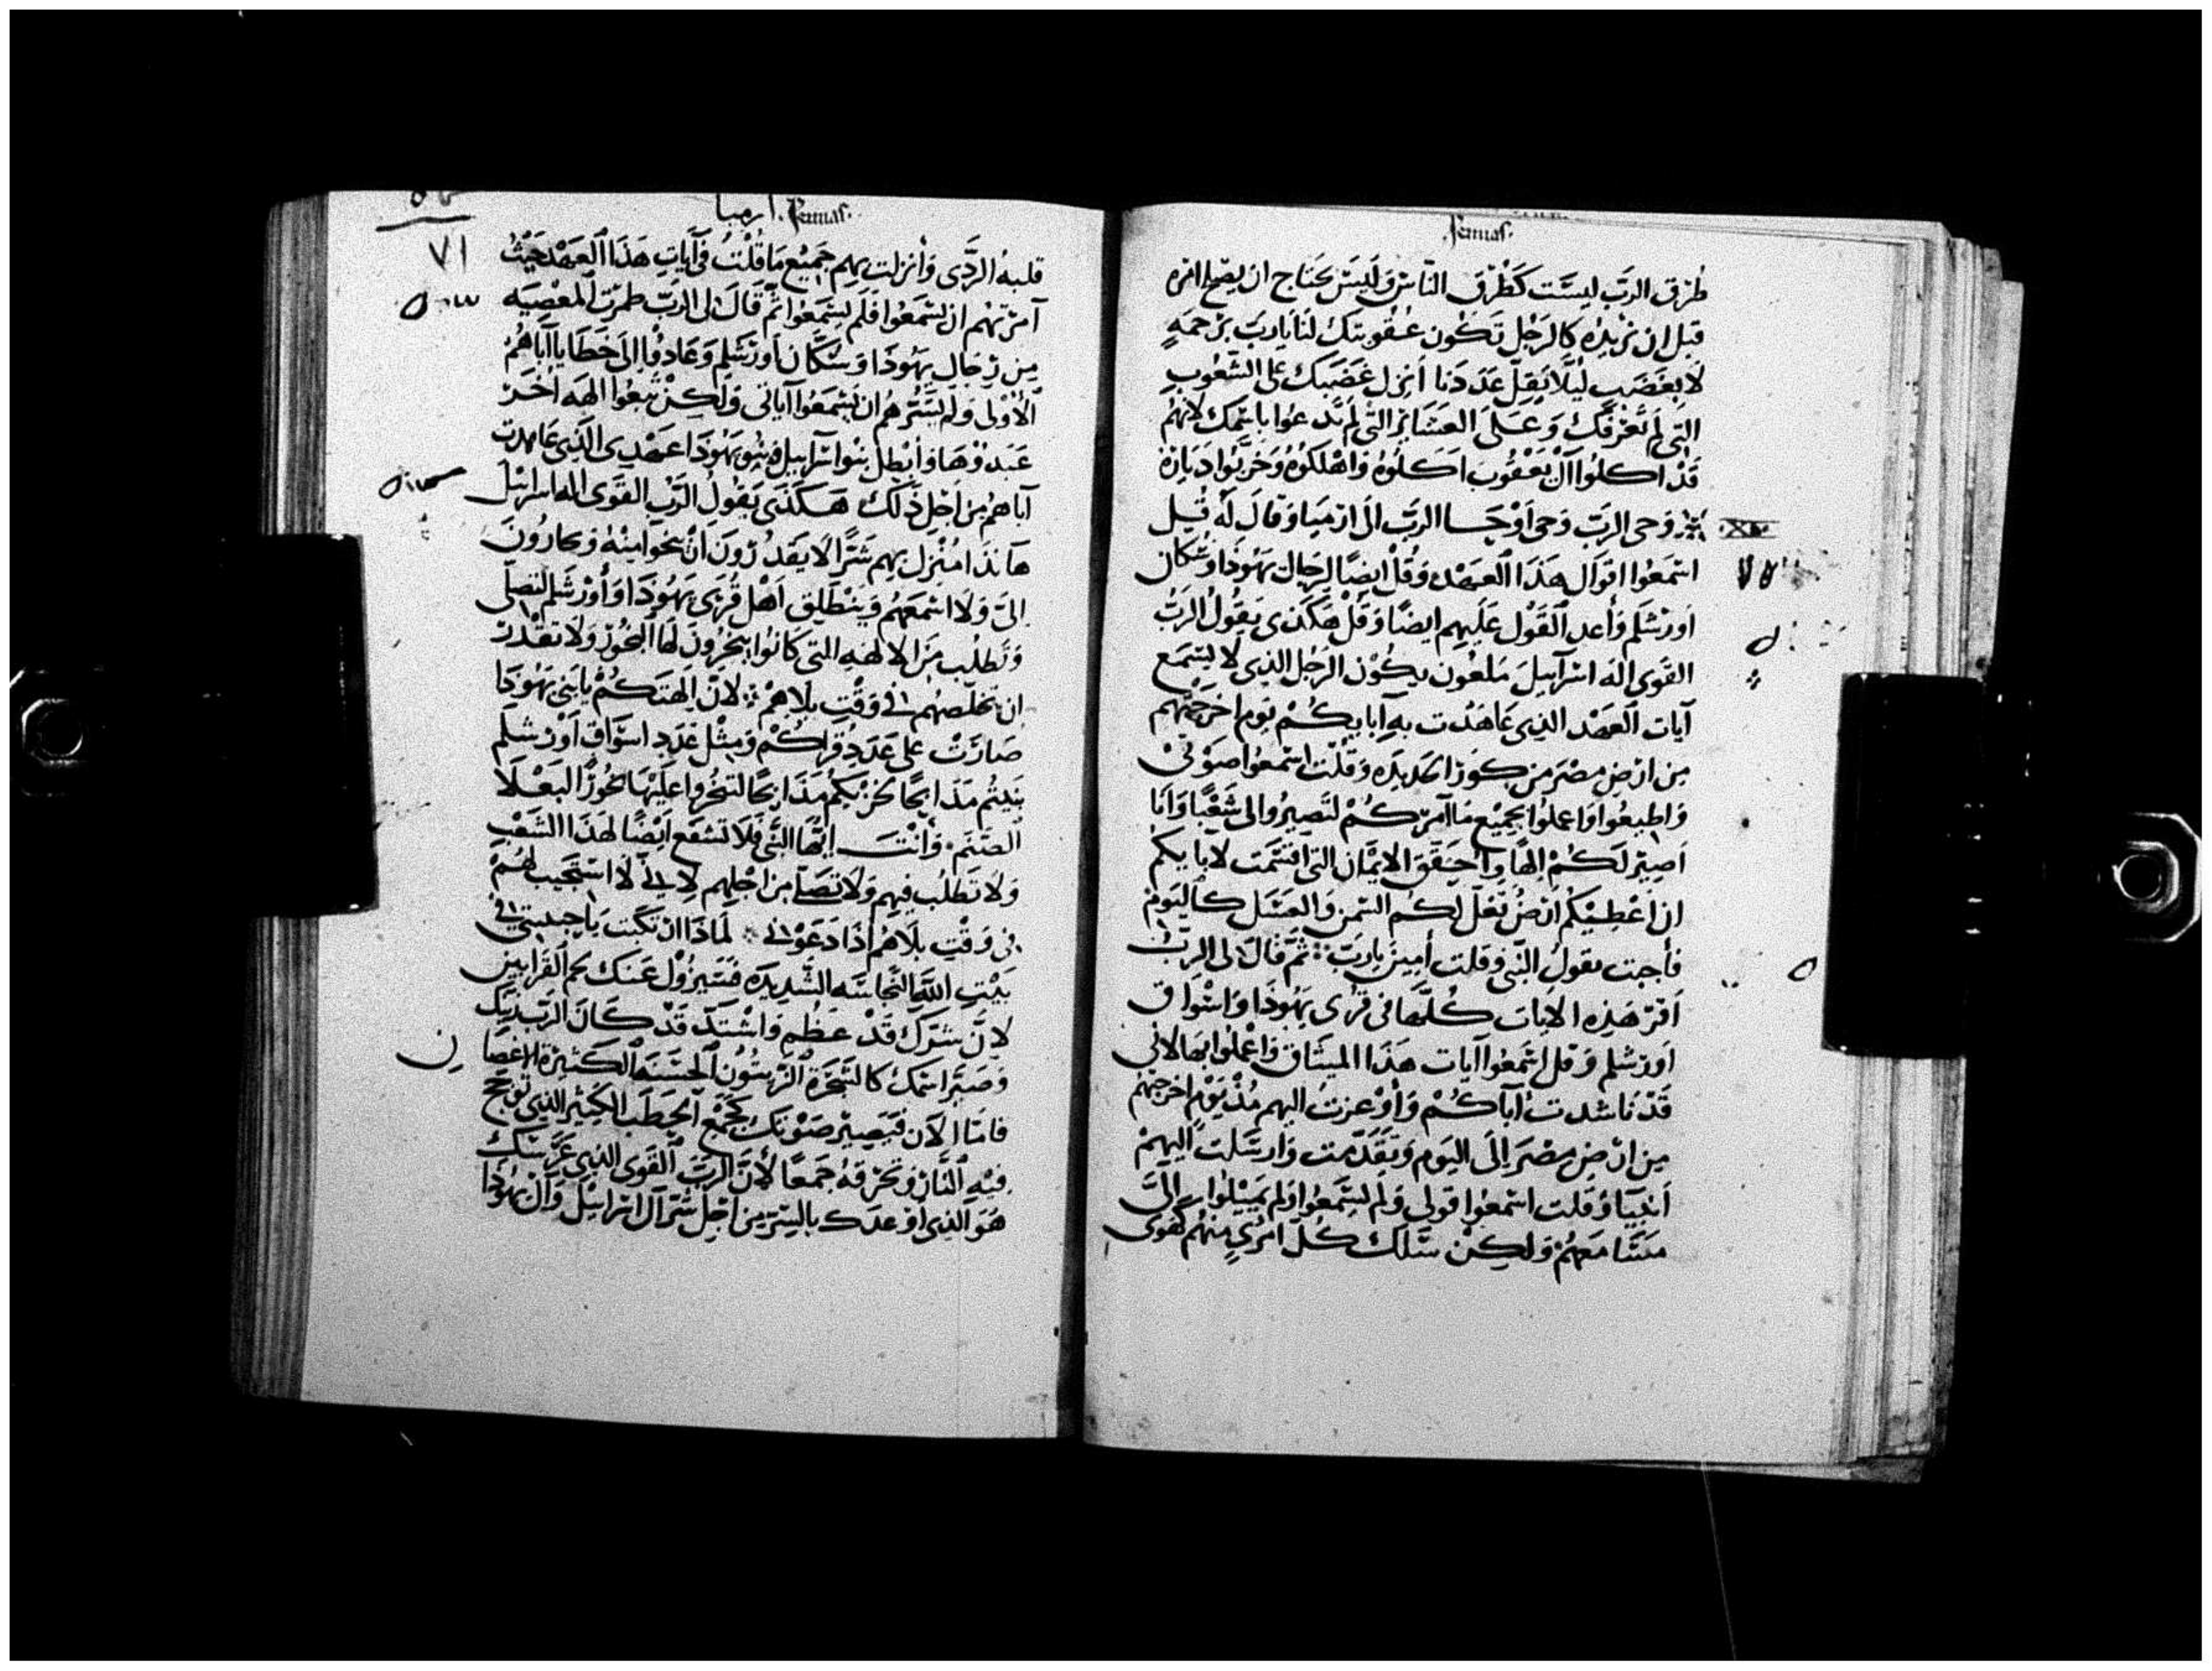 Jeremias.
طرق الرب ليست كطرق الناس وليس يحتاج ان يصلح امره
قبل ان تريده كالرجل تكون عقوبتك لنا يا رب برحمه
لا بغضب ليلا يقل عددنا انزل غضبك على الشعوب
التى لم تعرفك وعلى العشاير التى لم تدعوا باسمك لانهم
قد اكلوا آل يعقوب اكلوه واهلكوه وخربوا دياره
وحى الرب وحى اوحا الرب الى ارميا وقال له قبل
XI
استمعوا اقوال هذا العهد وقل ايضا لرجال يهوذا وسكان
اورشلم وأعد القول عليهم ايضا وقل هكذى يقول الرب
القوى اله اسرآييل ملعون يكون الرجل الذى لا يستمع
آيات العهد الذى عاهدت به آباييكم يوم اخرجتهم
من ارض مصر من كور الحديد وقلت استمعوا صوتى
واطيعوا واعملوا بجميع ما آمركم لتصيروا لى شعبا وانا
اصير لكم الها واحقق الايمان التى اقتسمت لآباييكم
ان اعطيكم ارض تغل لكم السمن والعسل كاليوم
فأجبت يقول النبى وقلت أمين يا رب ثم قال لى الرب
اقر هذه الايات كلها فى قرى يهوذا واسواق
اورشلم وقل استمعوا آيات هذا الميثاق واعملوا بها لانى
قد ناشدت آباكم وأوعزت اليهم مذ يوم اخرجتهم
من ارض مصر الى اليوم وتقدمت وارسلت اليهم
انبيا وقلت استمعوا قولى ولم يستمعوا ولم يميلوا الى
مسامعهم ولكن سلك كل امرى منهم كهوى
ارميا. Jeremias.
٧١
قلبه الردى وأنزلت بهم جميع ما قلت فى آيات هذا العهد حيث
آمرتهم ان يستمعوا فلم يستمعوا ثم قال لى الرب ظهرت المعصيه
من رجال يهوذا وسكان اورشلم وعادوا الى خطايا آباهم
الاولى ولم يسرهم ان يسمعوا آياتى ولكن تبعوا الهه اخر
عبدوها وابطل بنوا اسراييل وبنو يهوذا عهدى الذى عاهدت
آباهم من اجل ذلك هكذى يقول الرب القوى اله اسرائيل
هانذا منزل بهم شرا لا يقدرون ان ينجوا منه ويجارون
الى ولا اسمعهم وينطلق اهل قرى يهوذا وأورشلم لتصلى
وتطلب من الالهه التى كانوا يبخرون لها البخور ولا تقدر
ان تخلصهم فى وقت بلاهم لان آلهتكم يا بنى يهوذا
صارت على عدد قراكم ومثل عدد اسواق اورشلم
بنيتم مذابحا لخزيكم مذابحا لتبخروا عليها بخور البعلا
الصنم وأنت ايها النبى فلا تشفع ايضا لهذا الشعب
ولا تطلب فيهم ولا تصلى من اجلهم لانى لا استجيب لهم
فى وقت بلاهم اذا دعونى لماذا ارتكبت يا حبيبتى فى
بيت الله النجاسه الشديده فسيزول عنك لحم القرابين
لان شرك قد عظم واشتد قد كان الرب زينك
وصير اسمك كالشجرة الزيتون الحسنه الكثيرة الاغصان
فاما الان فيصير صوتك كجمع الحطب الكثير الذى توجج
فيه النار وتحرقه جمعا لأن الرب القوى الذى غرسك
هو الذى أوعدك بالشر من اجل شر آل اسرائيل وآل يهوذا